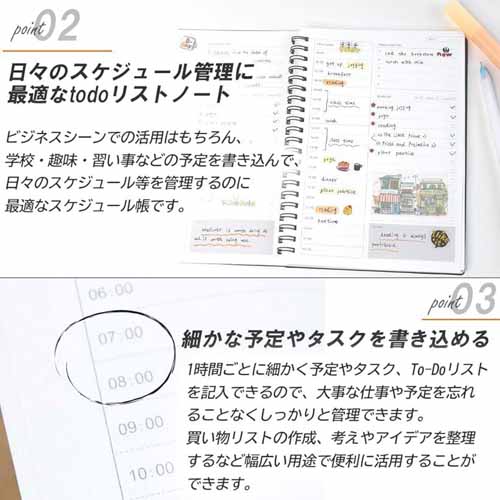 point 02
日々のスケジュール管理に
最適なtodoリストノート
ビジネスシーンでの活用はもちろん、
学校・趣味・習い事などの予定を書き込んで、
日々のスケジュール等を管理するのに
最適なスケジュール帳です。
breakfast
reading
dinner
piano practice
reading
now
yoga
reading
piano practice
point 03
細かな予定やタスクを書き込める
1時間ごとに細かく予定やタスク、To-Doリスト
を記入できるので、大事な仕事や予定を忘れ
ることなくしっかりと管理できます。
買い物リストの作成、考えやアイデアを整理
するなど幅広い用途で便利に活用することが
できます。
06:00
07:00
08:00
09:00
10:00